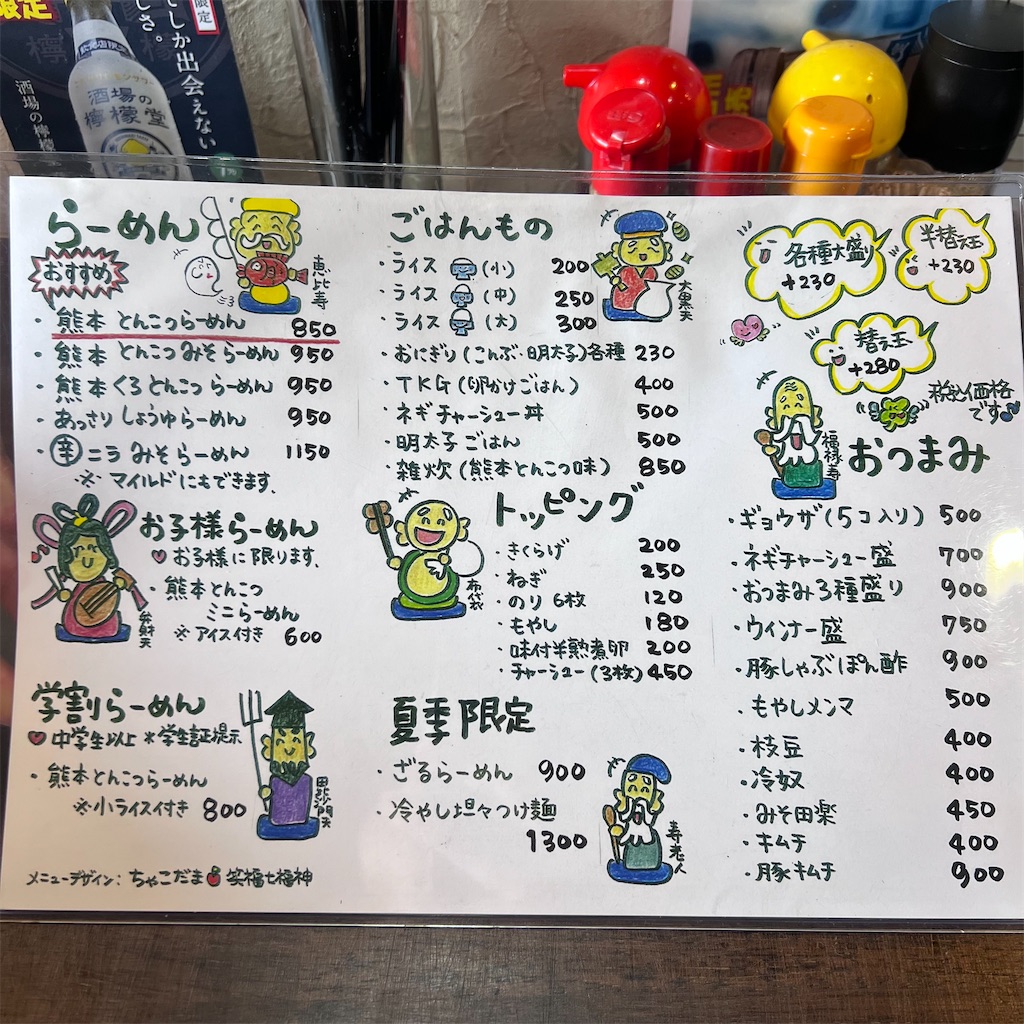 限定
酒場の
檸檬堂
酒場の檸檬
でしか出会えない
しさ。
限定
らーめん
おすすめ
恵比寿
・熊本 とんこつらーめん 850
・熊本 とんこつみそらーめん 950
・熊本くろとんこつらーめん 950
・あっさりしょうゆらーめん 950
・辛ニラみそらーめん 1150
※マイルドにもできます。
お子様らーめん
♥お子様に限ります。
・熊本とんこつ
ミニらーめん
※アイス付き 600
弁財天
学割らーめん
♥中学生以上 ※学生証提示
・熊本とんこつらーめん
※小ライス付き 800
毘沙門天
メニューデザイン:ちゃこだま 笑福七福神
ごはんもの
大黒天
・ライス (小) 200
・ライス (中) 250
・ライス (大) 300
・おにぎり(こんぶ・明太子)各種 230
・TKG(卵かけごはん) 400
・ネギチャーシュー丼 500
・明太子ごはん 500
・雑炊(熊本とんこつ味) 850
トッピング
布袋
・きくらげ 200
・ねぎ 250
・のり 6枚 120
・もやし 180
・味付半熟煮卵 200
・チャーシュー(3枚) 450
夏季限定
・ざるらーめん 900
・冷やし坦々つけ麺
1300
寿老人
各種大盛
+230
半替え玉
+230
替え玉
+280
税込価格
です
福禄寿
おつまみ
・ギョウザ(5コ入り) 500
・ネギチャーシュー盛 700
・おつまみ3種盛り 900
・ウインナー盛 750
・豚しゃぶぽん酢 900
・もやしメンマ 500
・枝豆 400
・冷奴 400
・みそ田楽 450
・キムチ 400
・豚キムチ 900